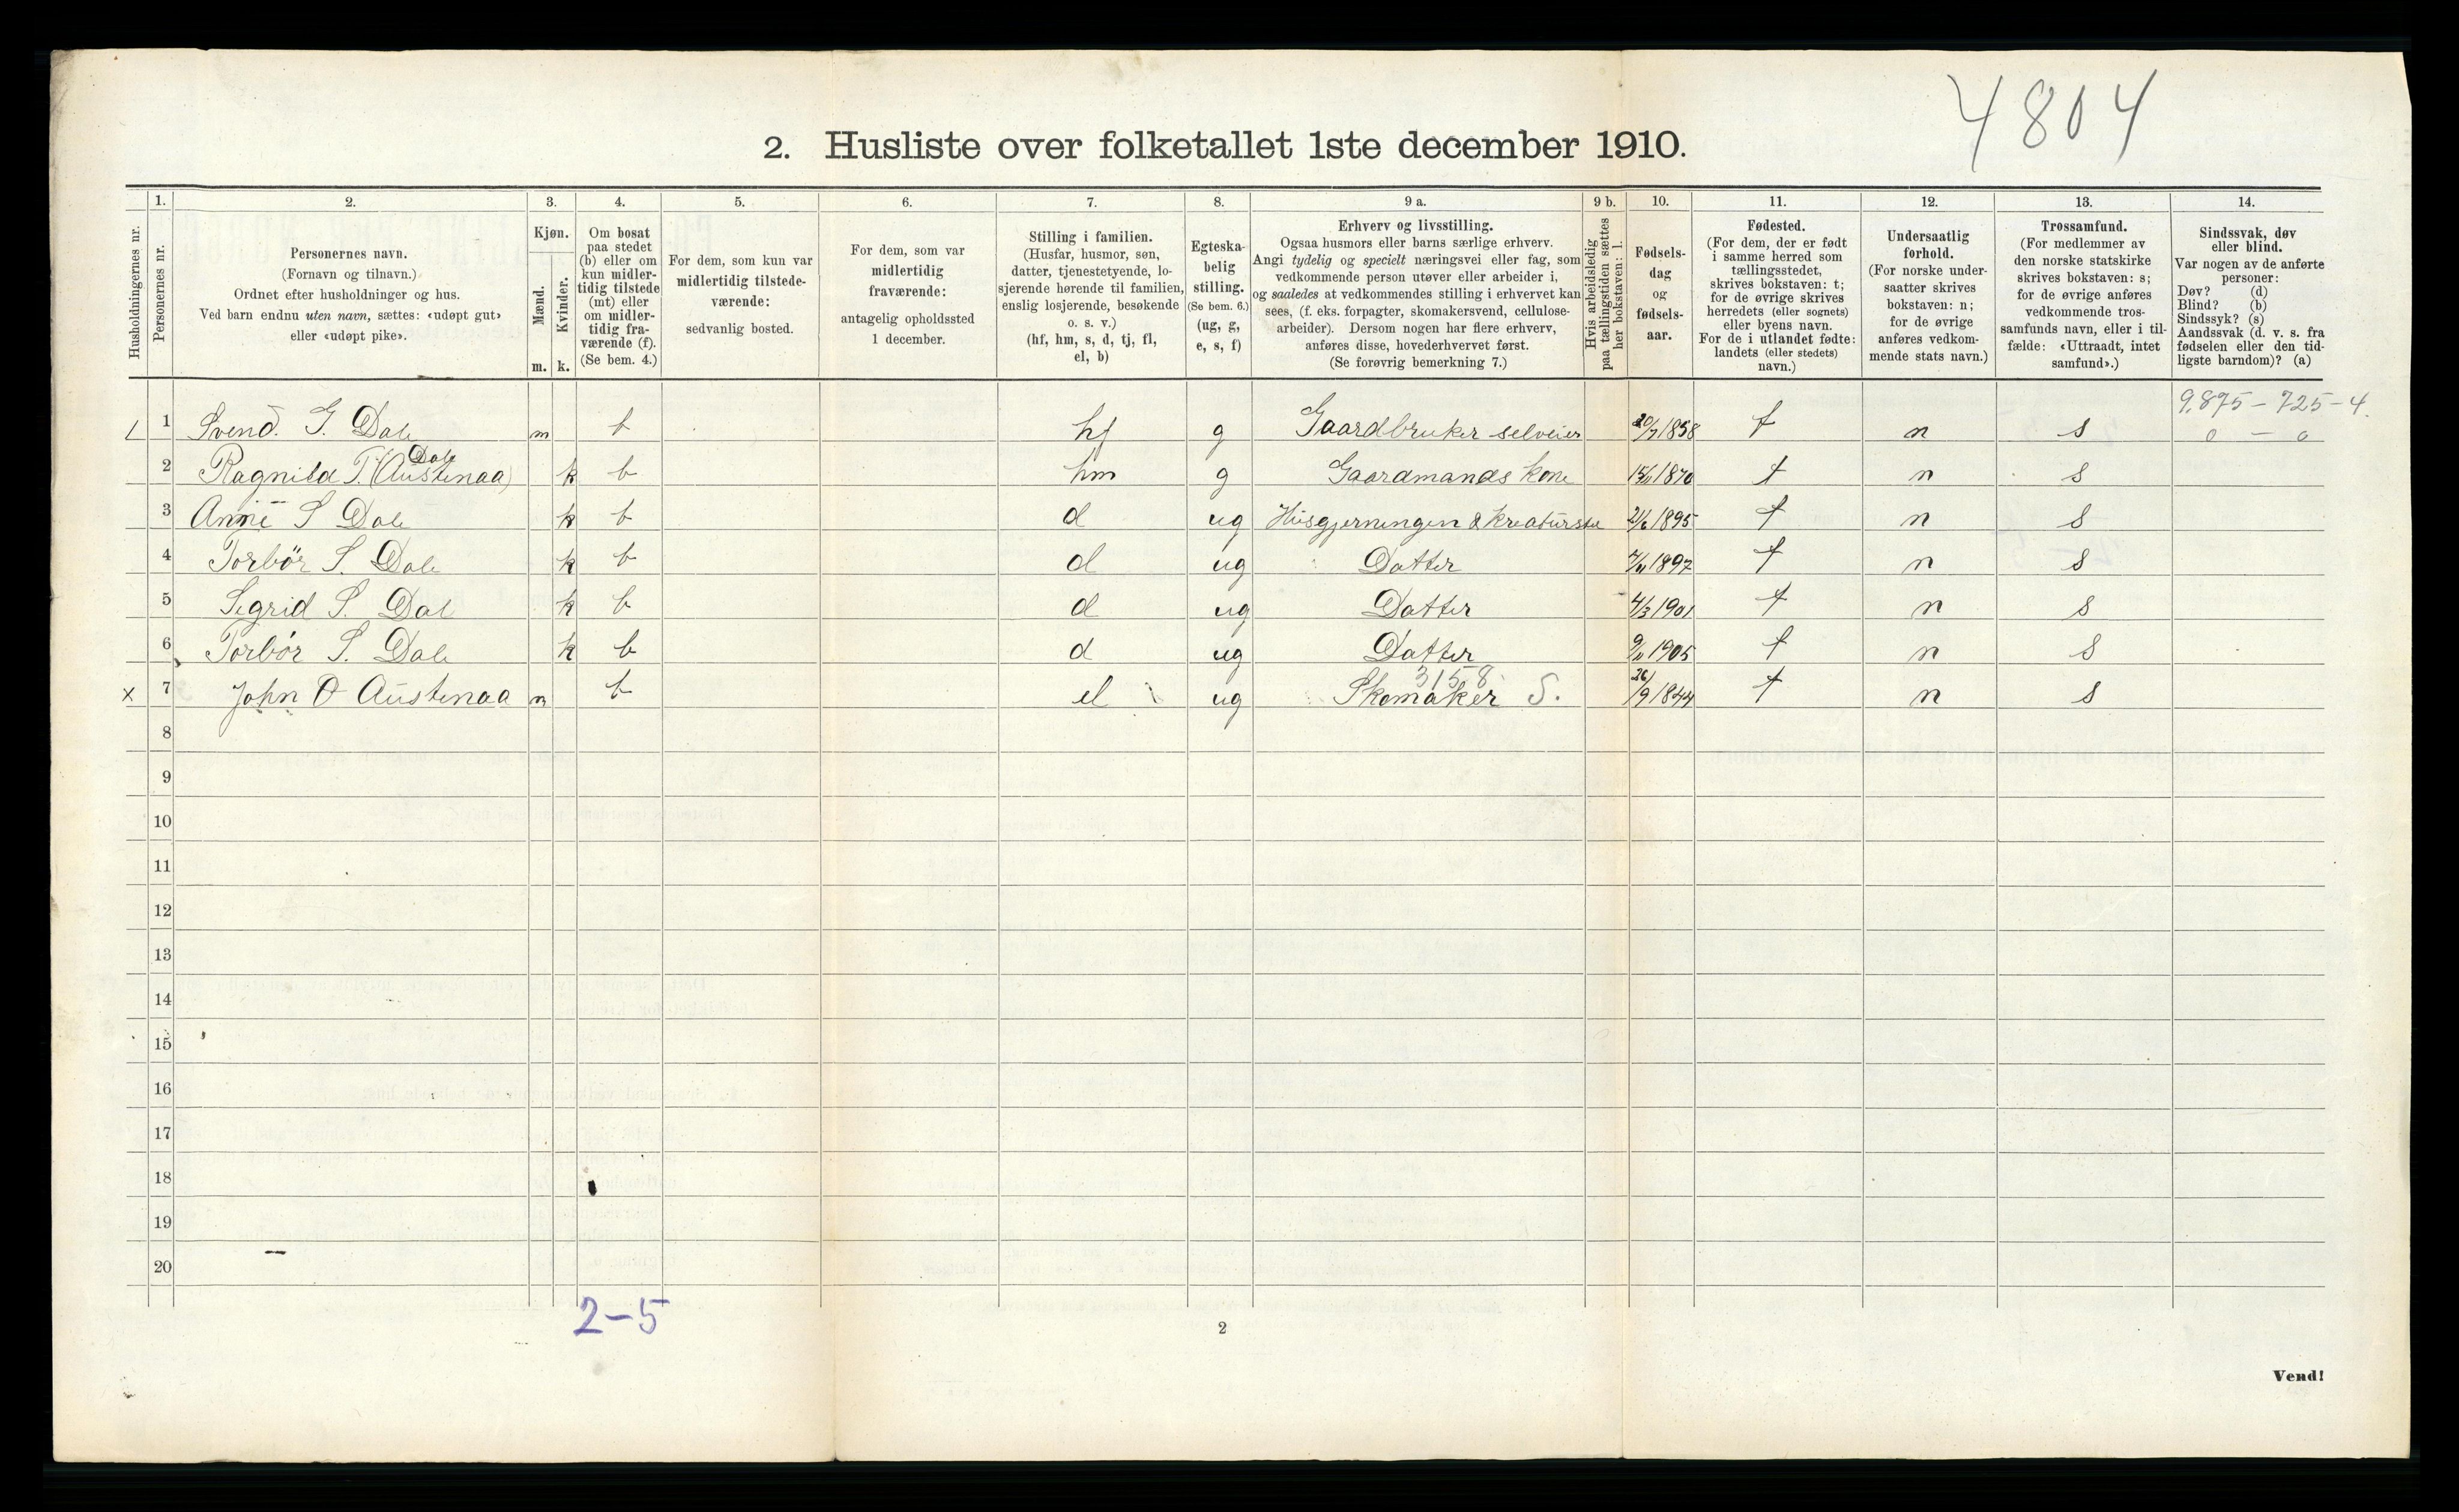 4804
2. Husliste over folketallet 1ste december 1910.
Husholdningernes nr.
1. Personernes nr.
2. Personernes navn.
(Fornavn og tilnavn.)
Ordnet efter husholdninger og hus.
Ved barn endnu uten navn, sættes: «udøpt gut»
eller «udøpt pike».
3. Kjøn.
Mænd. Kvinder.
m. k.
4. Om bosat
paa stedet
(b) eller om
kun midler-
tidig tilstede
(mt) eller
om midler-
tidig fra-
værende (f).
(Se bem. 4.)
5. For dem, som kun var
midlertidig tilstede-
værende:
sedvanlig bosted.
6. For dem, som var
midlertidig
fraværende:
antagelig opholdssted
1 december.
7. Stilling i familien.
(Husfar, husmor, søn,
datter, tjenestetyende, lo-
sjerende hørende til familien,
enslig losjerende, besøkende
o. s. v.)
(hf, hm, s, d, tj, fl,
el, b)
8. Egteska-
belig
stilling.
(Se bem. 6.)
(ug, g,
e, s, f)
9 a. Erhverv og livsstilling.
Ogsaa husmors eller barns særlige erhverv.
Angi tydelig og specielt næringsvei eller fag, som
vedkommende person utøver eller arbeider i,
og saaledes at vedkommendes stilling i erhvervet kan
sees, (f. eks. forpagter, skomakersvend, cellulose-
arbeider). Dersom nogen har flere erhverv,
anføres disse, hovederhvervet først.
(Se forøvrig bemerkning 7.)
9 b. Hvis arbeidsledig
paa tællingstiden sættes
her bokstaven: l.
10. Fødsels-
dag
og
fødsels-
aar.
11. Fødested.
(For dem, der er født
i samme herred som
tællingsstedet,
skrives bokstaven: t;
for de øvrige skrives
herredets (eller sognets)
eller byens navn.
For de i utlandet fødte:
landets (eller stedets)
navn.)
12. Undersaatlig
forhold.
(For norske under-
saatter skrives
bokstaven: n;
for de øvrige
anføres vedkom-
mende stats navn.)
13. Trossamfund.
(For medlemmer av
den norske statskirke
skrives bokstaven: s;
for de øvrige anføres
vedkommende tros-
samfunds navn, eller i til-
fælde: «Uttraadt, intet
samfund».)
14. Sindssvak, døv
eller blind.
Var nogen av de anførte
personer:
Døv? (d)
Blind? (b)
Sindssyk? (s)
Aandssvak (d. v. s. fra
fødselen eller den tid-
ligste barndom)? (a)
9,875 - 725 - 4.
1 Svend. G. Dale m b hf g Gaardbruker selveier 20/7 1858 t n s 0 - 0
Dale
2 Ragnild T. (Austenaa) k b hm g Gaardmands kone 15/11 1870 t n s
3 Anne S Dale k b d ug Husgjerningen & kreaturste 21/6 1895 t n s
4 Torbør S. Dale k b d ug Datter 7/11 1897 t n s
5 Sigrid S. Dal k b d ug Datter 4/3 1901 t n s
6 Torbør S. Dale k b d ug Datter 9/11 1905 t n s
3158
x 7 John O Austenaa m b el ug Skomaker S. 26/9 1844 t n s
8
9
10
11
12
13
14
15
16
17
18
19
20
2-5
2
Vend!